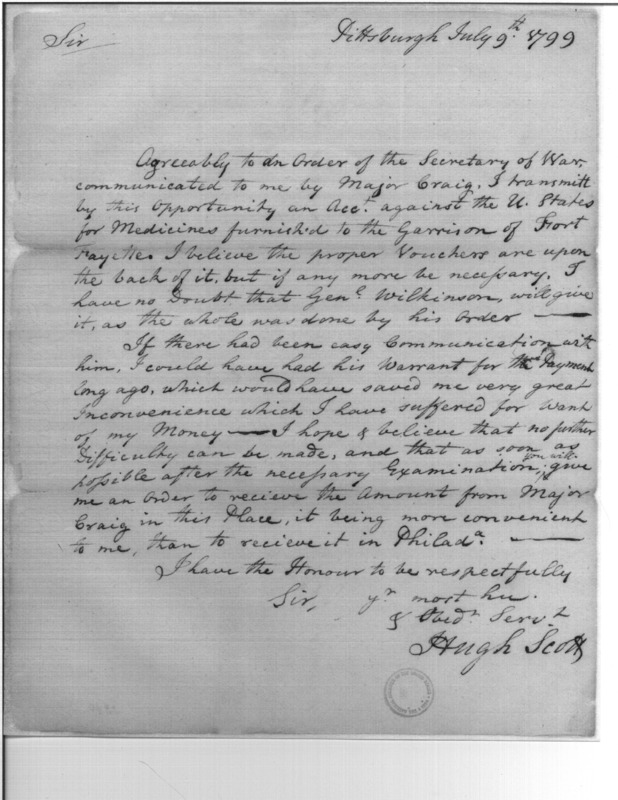 Sir
Pittsburgh July 9th. 1799
Agreeably to an Order of the Secretary of War,
communicated to me by Major Craig, I transmitt
by this Opportunity an Acct. against the U. States
for Medicines furnish'd to the Garrison of Fort
Fayette. I believe the proper Vouchers are upon
the back of it, but if any more be necessary, I
have no Doubt that Genl. Wilkinson, will give
it, as the whole was done by his Order —
If there had been easy Communication with
him, I could have had his Warrant for the Payment
long ago, which would have saved me very great
Inconvenience which I have suffered for Want
of my Money — I hope & believe that no further
Difficulty can be made, and that as soon as
possible after the necessary Examination, you will give
me an Order to recieve the Amount from Major
Craig in this Place, it being more convenient
to me, than to recieve it in Philada. —
I have the Honour to be respectfully
Sir, yr. most hu.
& Obedt. Servt.
Hugh Scott